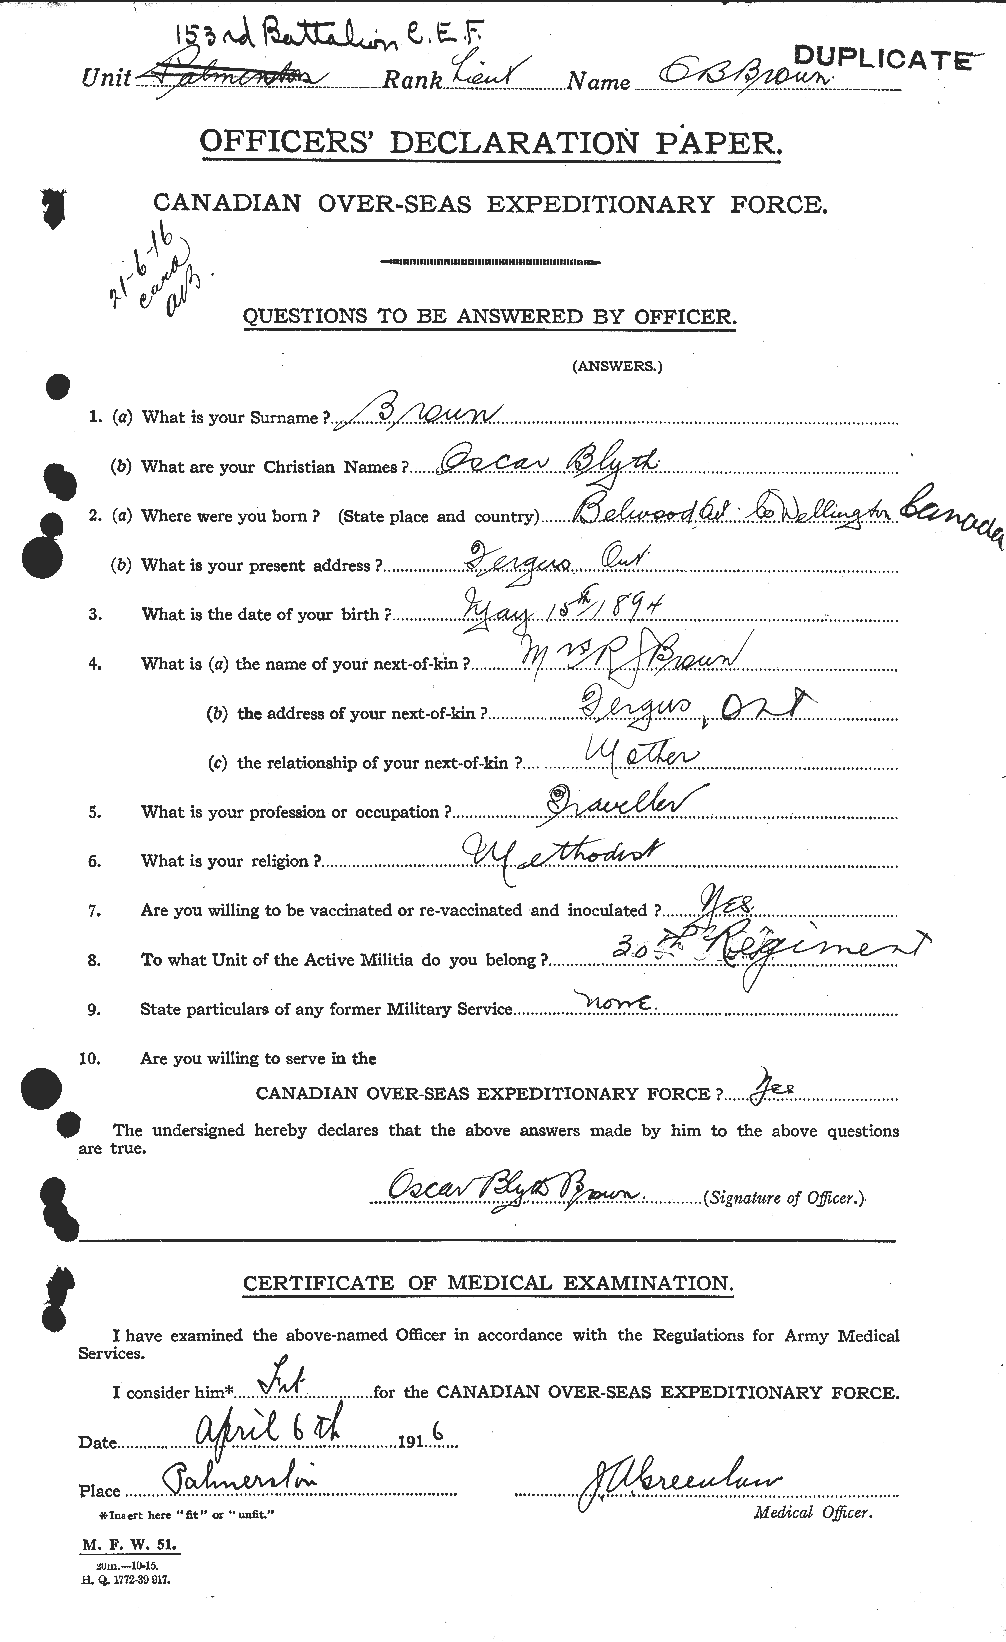 153rd Battalion C.E.F.
DUPLICATE
Unit Palmerston Rank Lieut Name O B Brown
OFFICERS' DECLARATION PAPER.
CANADIAN OVER-SEAS EXPEDITIONARY FORCE.
21-6-16
QUESTIONS TO BE ANSWERED BY OFFICER.
(ANSWERS.)
1. (a) What is your Surname? Brown
(b) What are your Christian Names? Oscar Blyth
2. (a) Where were you born? (State place and country) Belwood Co Wellington Canada
(b) What is your present address? Fergus Ont
3. What is the date of your birth? May 15th 1894
4. What is (a) the name of your next-of-kin? Mrs R J Brown
(b) the address of your next-of-kin? Fergus, Ont
(c) the relationship of your next-of-kin? Mother
5. What is your profession or occupation? Traveller
6. What is your religion? Methodist
7. Are you willing to be vaccinated or re-vaccinated and inoculated? Yes
8. To what Unit of the Active Militia do you belong? 30th Regiment
9. State particulars of any former Military Service none.
10. Are you willing to serve in the
CANADIAN OVER-SEAS EXPEDITIONARY FORCE? Yes
The undersigned hereby declares that the above answers made by him to the above questions
are true.
Oscar Blyth Brown. (Signature of Officer.)
CERTIFICATE OF MEDICAL EXAMINATION.
I have examined the above-named Officer in accordance with the Regulations for Army Medical
Services.
I consider him* Fit for the CANADIAN OVER-SEAS EXPEDITIONARY FORCE.
Date April 6th 1916
Place Palmerston J A Greenlaw
*Insert here "fit" or "unfit." Medical Officer.
M. F. W. 51.
20m.—10-15.
H. Q. 1772-39 917.